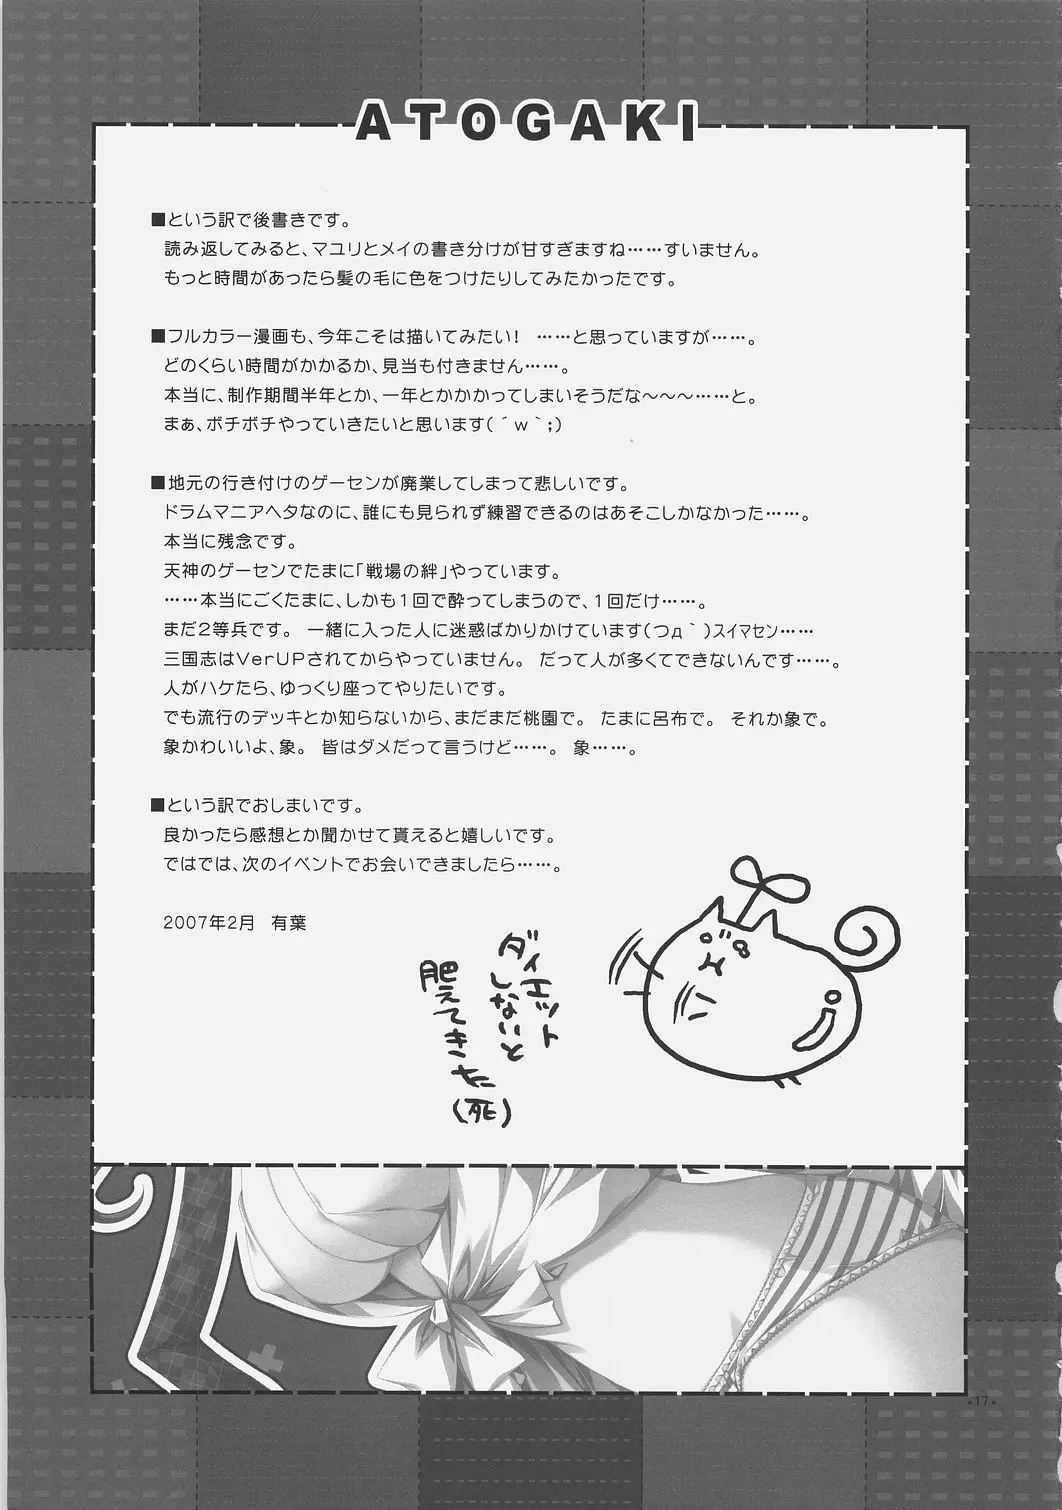 ATOGAKI
■という訳で後書きです。
読み返してみると、マユリとメイの書き分けが甘すぎますね……すいません。
もっと時間があったら髪の毛に色をつけたりしてみたかったです。
■フルカラー漫画も、今年こそは描いてみたい！　……と思っていますが……。
どのくらい時間がかかるか、見当も付きません……。
本当に、制作期間半年とか、一年とかかかってしまいそうだな～～～……と。
まぁ、ボチボチやっていきたいと思います(´ｗ｀；)
■地元の行き付けのゲーセンが廃業してしまって悲しいです。
ドラムマニアヘタなのに、誰にも見られず練習できるのはあそこしかなかった……。
本当に残念です。
天神のゲーセンでたまに「戦場の絆」やっています。
……本当にごくたまに、しかも１回で酔ってしまうので、１回だけ……。
まだ２等兵です。　一緒に入った人に迷惑ばかりかけています(つд｀)ｽｲﾏｾﾝ……
三国志はＶｅｒＵＰされてからやっていません。　だって人が多くてできないんです……。
人がハケたら、ゆっくり座ってやりたいです。
でも流行のデッキとか知らないから、まだまだ桃園で。　たまに呂布で。　それか象で。
象かわいいよ、象。　皆はダメだって言うけど……。　象……。
■という訳でおしまいです。
良かったら感想とか聞かせて貰えると嬉しいです。
ではでは、次のイベントでお会いできましたら……。
2007年2月　有葉
ダイエット
しないと
肥えてきた
(死)
・17・